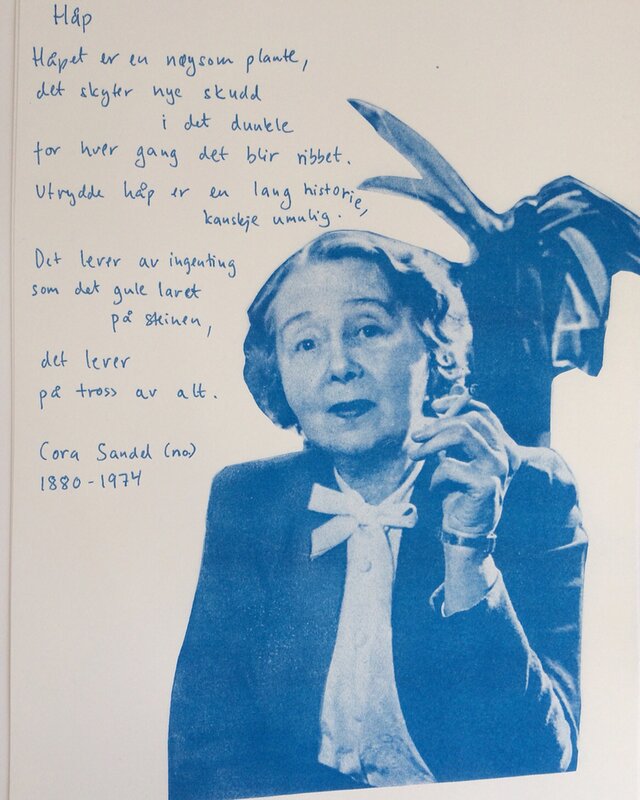 Håp
Håpet er en nøysom plante,
det skyter nye skudd
i det dunkle
for hver gang det blir ribbet.
Utrydde håp er en lang historie,
kanskje umulig.
Det lever av ingenting
som det gule lavet
på steinen,
det lever
på tross av alt.
Cora Sandel (no.)
1880-1974